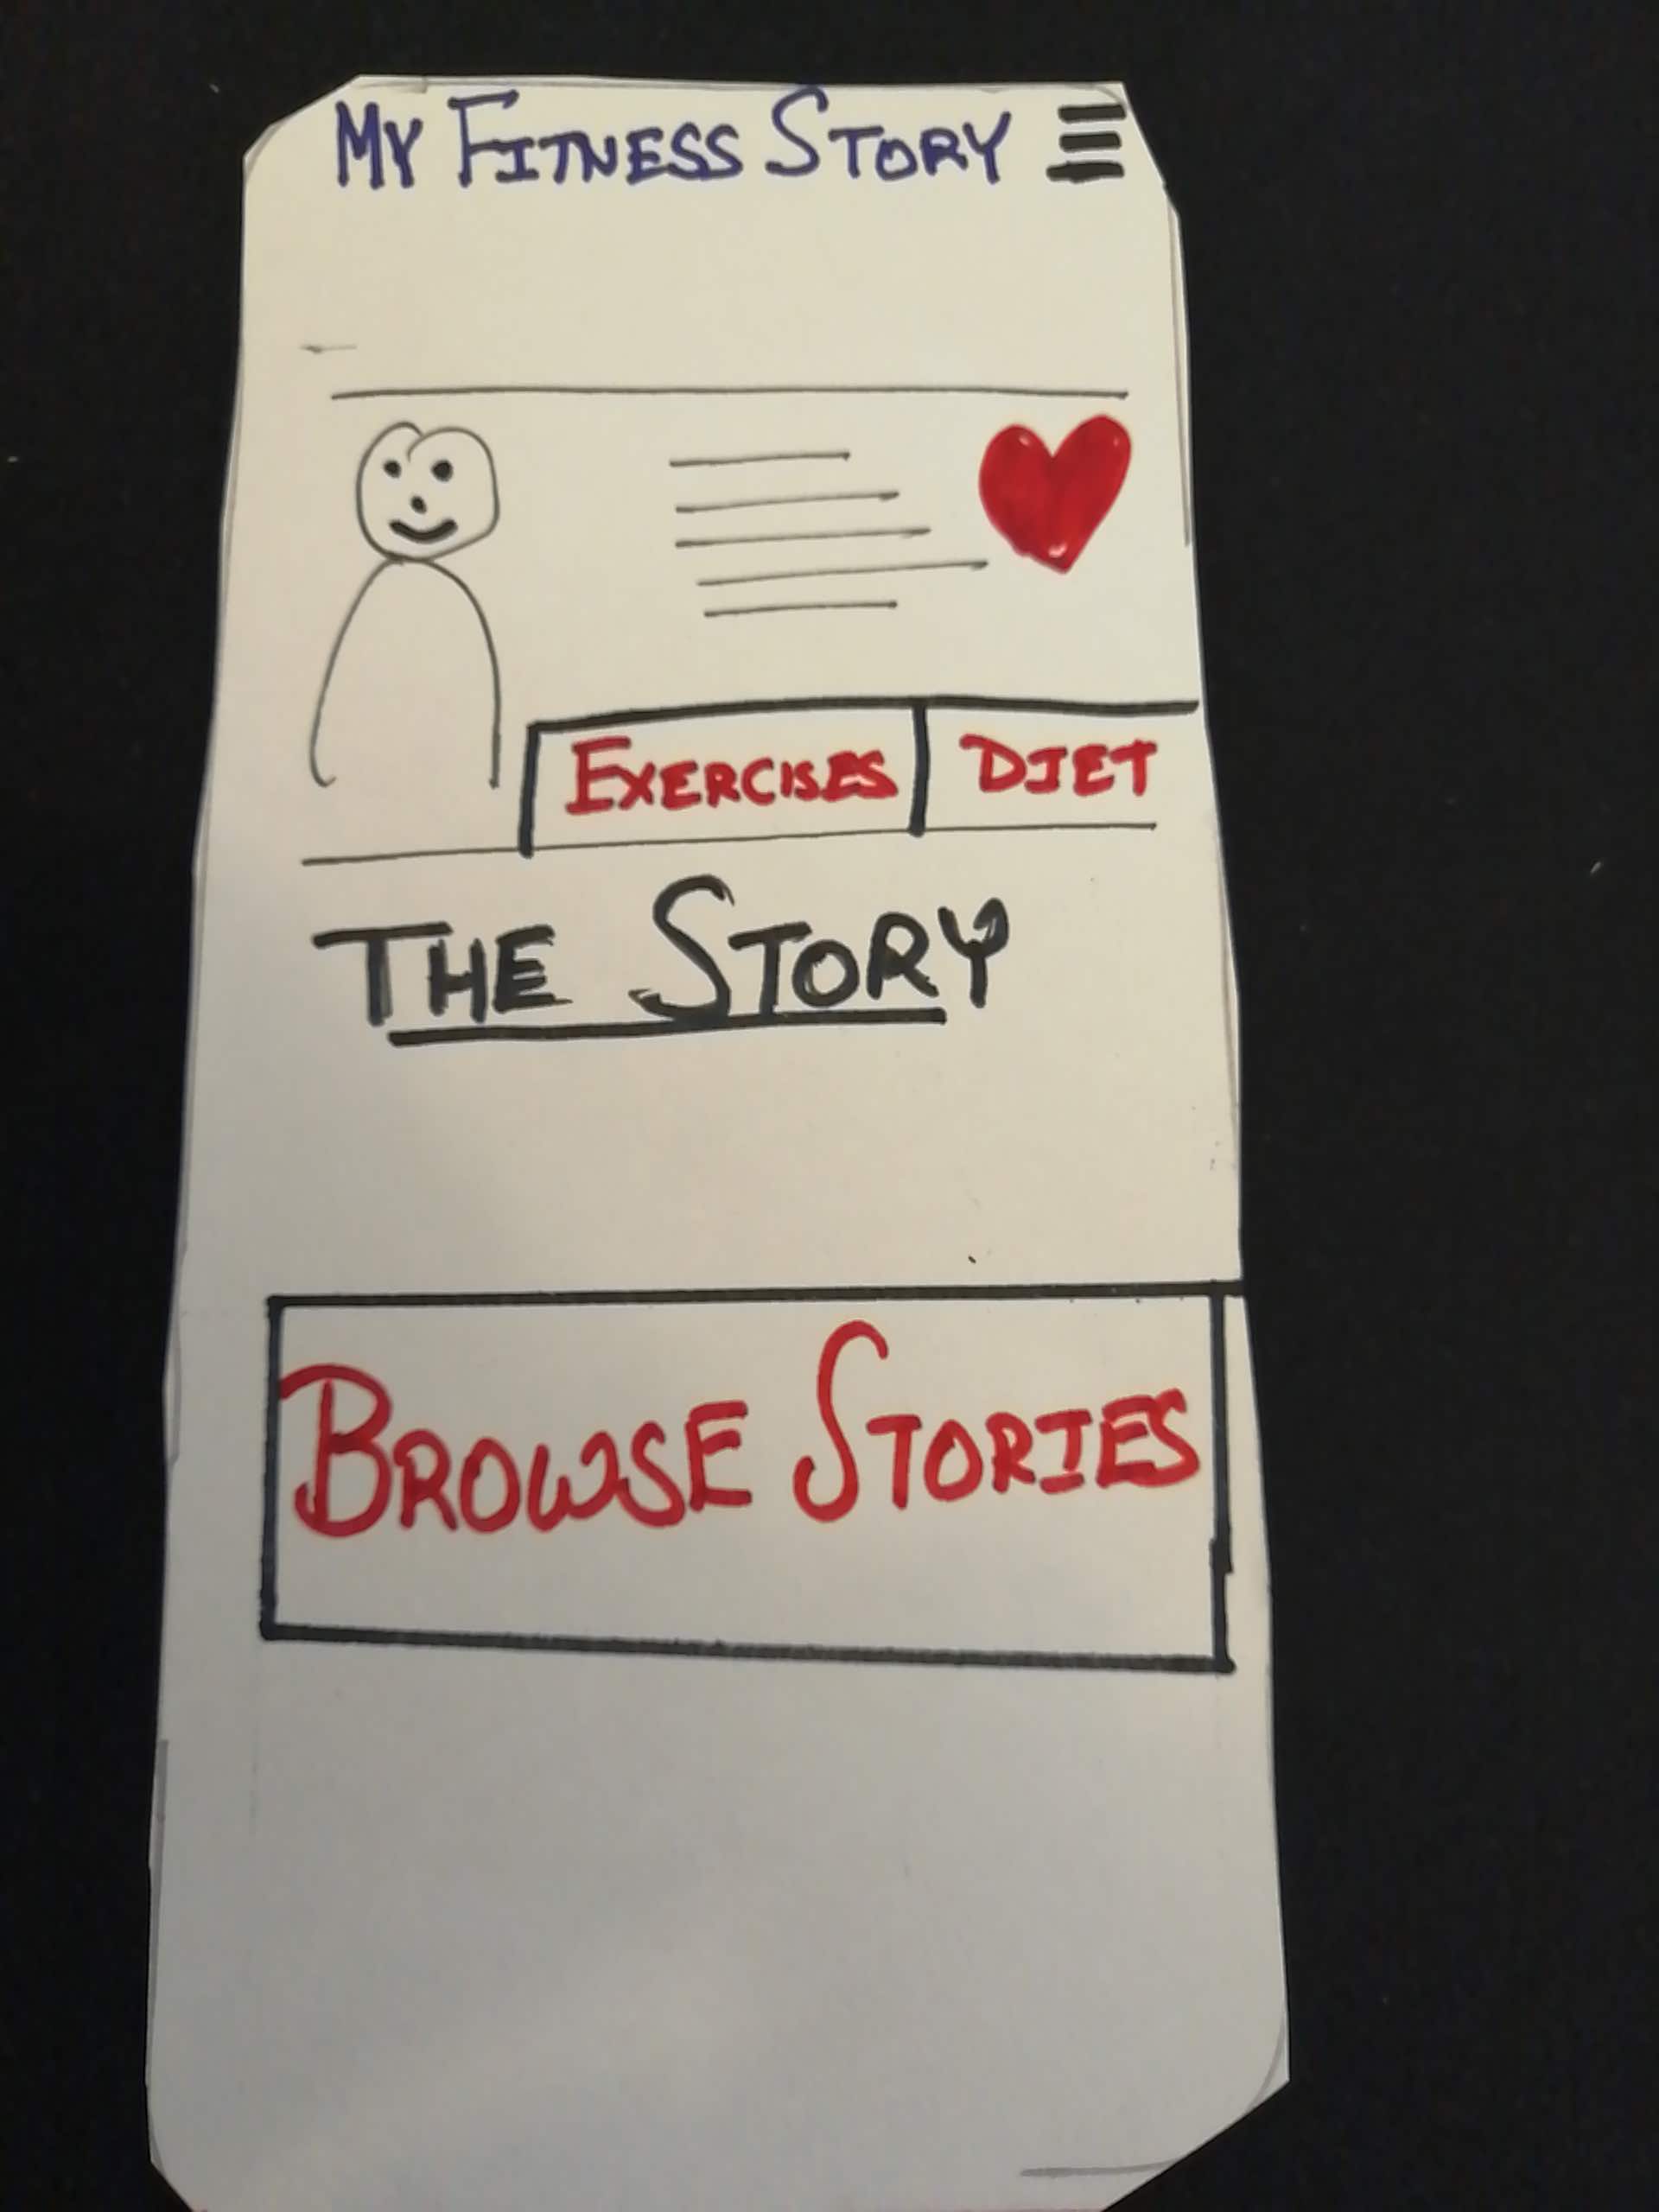 MY FITNESS STORY
EXERCISES DIET
THE STORY
BROWSE STORIES